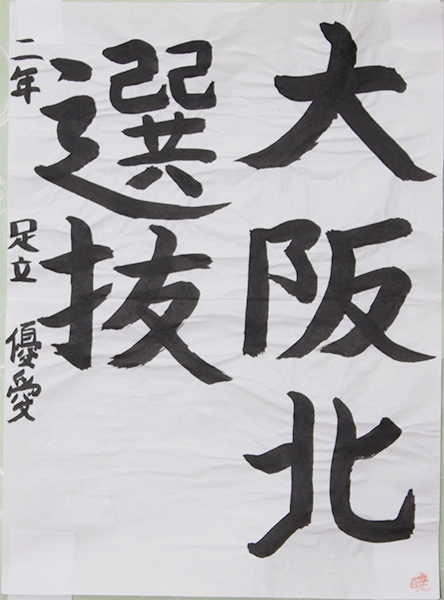 大阪北
選抜
二年 足立 優愛
暁